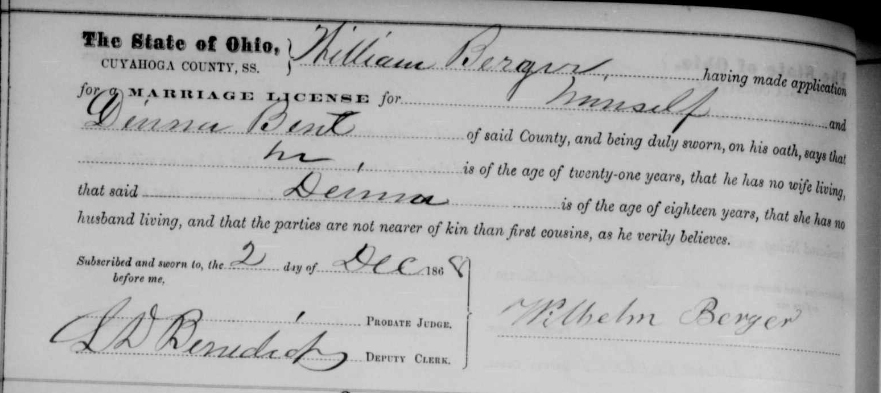 The State of Ohio, } William Berger, having made application
CUYAHOGA COUNTY, SS.
for a MARRIAGE LICENSE for himself and
Deinna Bent of said County, and being duly sworn, on his oath, says that
he is of the age of twenty-one years, that he has no wife living,
that said Deinna is of the age of eighteen years, that she has no
husband living, and that the parties are not nearer of kin than first cousins, as he verily believes.
Subscribed and sworn to, the 2 day of Dec 1868
before me,
Wilhelm Berger
PROBATE JUDGE.
S D Benedict DEPUTY CLERK.